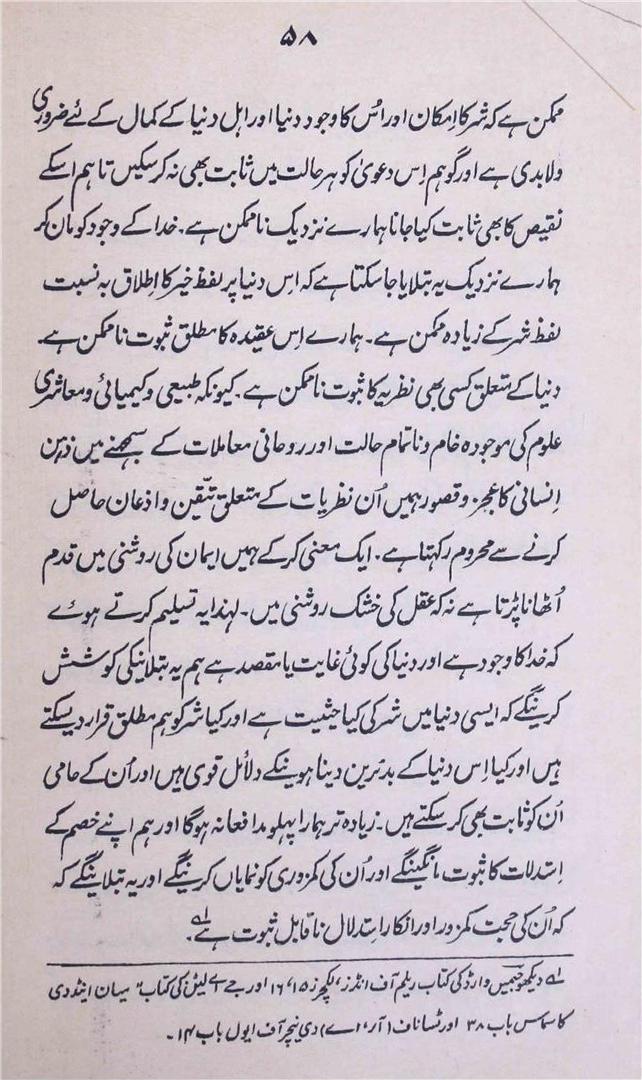 ۵۸
ممکن ہے کہ شر کا اِمکان اور اُس کا وجود دنیا اور اہل دنیا کے کمال کے لئے ضروری
ولابدی ہے اور گو ہم اِس دعویٰ کو ہر حالت میں ثابت بھی نہ کر سکیں تاہم اسکے
نقیض کا بھی ثابت کیا جانا ہمارے نزدیک ناممکن ہے۔ خدا کے وجود کو مان کر
ہمارے نزدیک یہ بتلایا جا سکتا ہے کہ اِس دنیا پر لفظ خیر کا اِطلاق بہ نسبت
لفظ شر کے زیادہ ممکن ہے۔ ہمارے اِس عقیدہ کا مطلق ثبوت ناممکن ہے۔
دنیا کے متعلق کسی بھی نظریہ کا ثبوت ناممکن ہے۔ کیونکہ طبیعی و کیمیائی و معاشری
علوم کی موجودہ خام و ناتمام حالت اور روحانی معاملات کے سمجھنے میں ذہن
اِنسانی کا عجز و قصور ہمیں اُن نظریات کے متعلق تیّقین و اذعان حاصل
کرنے سے محروم رکھتا ہے۔ ایک معنی کر کے ہمیں ایمان کی روشنی میں قدم
اُٹھانا پڑتا ہے نہ کہ عقل کی خشک روشنی میں۔ لہندا یہ تسلیم کرتے ہوئے
کہ خدا کا وجود ہے اور دنیا کی کوئی غایت یا مقصد ہے ہم یہ بتلانیکی کوشش
کرینگے کہ ایسی دنیا میں شر کی کیا حثیت ہے اور کیا شر کو ہم مطلق قرار دیسکتے
ہیں اور کیا اِس دنیا کے بدترین دینا ہونیکے دلائل قوی ہیں اور اُن کے حامی
اُن کو ثابت بھی کر سکتے ہیں۔ زیادہ تر ہمارا پہلو مدافعانہ ہوگا اور ہم اپنے خصم کے
اِستدلات کا ثبوت مانگینگے اور اُن کی کمزوری کو نمایاں کرینگے اور یہ بتلاینگے کہ
کہ اُن کی حجت کمزور اور انکا اِستدلال ناقابل ثبوت ہے ؎۱۔
؎۱ دیکھو جیمس وارڈ کی کتاب ریلم آف انڈز، لکچرز ۱۵، ۱۶ اور جے اے لیٹن کی کتاب "میان اینڈ دی
کاسمس باب ۳۸ اور ٹساناف (آر، اے) دی نیچر آف ایول باب ۱۴۔